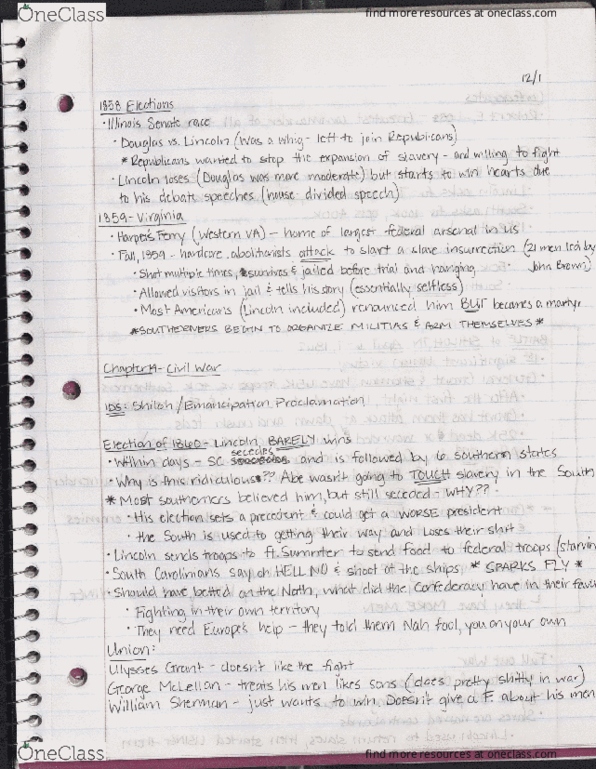 OneClass
find more resources at oneclass.com
12/1
1858 Elections
· Illinois Senate race
· Douglas vs. Lincoln (was a whig - left to join Republicans)
* Republicans wanted to stop the expansion of slavery - and willing to fight
· Lincoln loses (Douglas was more moderate) but starts to win hearts due
to his debate speeches (house divided speech)
1859 - Virginia
· Harper's Ferry (Western VA) - home of largest federal arsenal in US
· Fall, 1859 - hardcore abolitionists attack to start a slave insurrection (21 men led by
John Brown)
· Shot multiple times, survives & jailed before trial and hanging
· Allowed visitors in jail & tells his story (essentially selfless)
· Most Americans (Lincoln included) renounced him BUT becomes a martyr
*SOUTHERNERS BEGIN TO ORGANIZE MILITIAS & ARM THEMSELVES*
Chapter 14 - Civil War
IDS: Shiloh / Emancipation Proclamation
Election of 1860 - Lincoln BARELY wins
secedes
· Within days - SC and is followed by 6 southern states
· Why is this ridiculous?? Abe wasn't going to TOUCH slavery in the South
* Most southerners believed him, but still seceded - WHY??
· His election sets a precedent & could get a WORSE president
· the South is used to getting their way and loses their shit
· Lincoln sends troops to Ft. Sumnter to send food to federal troops (starvin
· South Carolinians say oh HELL NO & shoot at the ships * SPARKS FLY *
· Should have betted on the North, what did the Confederacy have in their favo
· Fighting in their own territory
· They need Europe's help - they told them Nah fool, you on your own
Union:
Ulysses Grant - doesn't like the fight
George McLellan - treats his men likes sons (does pretty shitty in war)
William Sherman - just wants to win. Doesn't give a F. about his men
OneClass
find more resources at oneclass.com